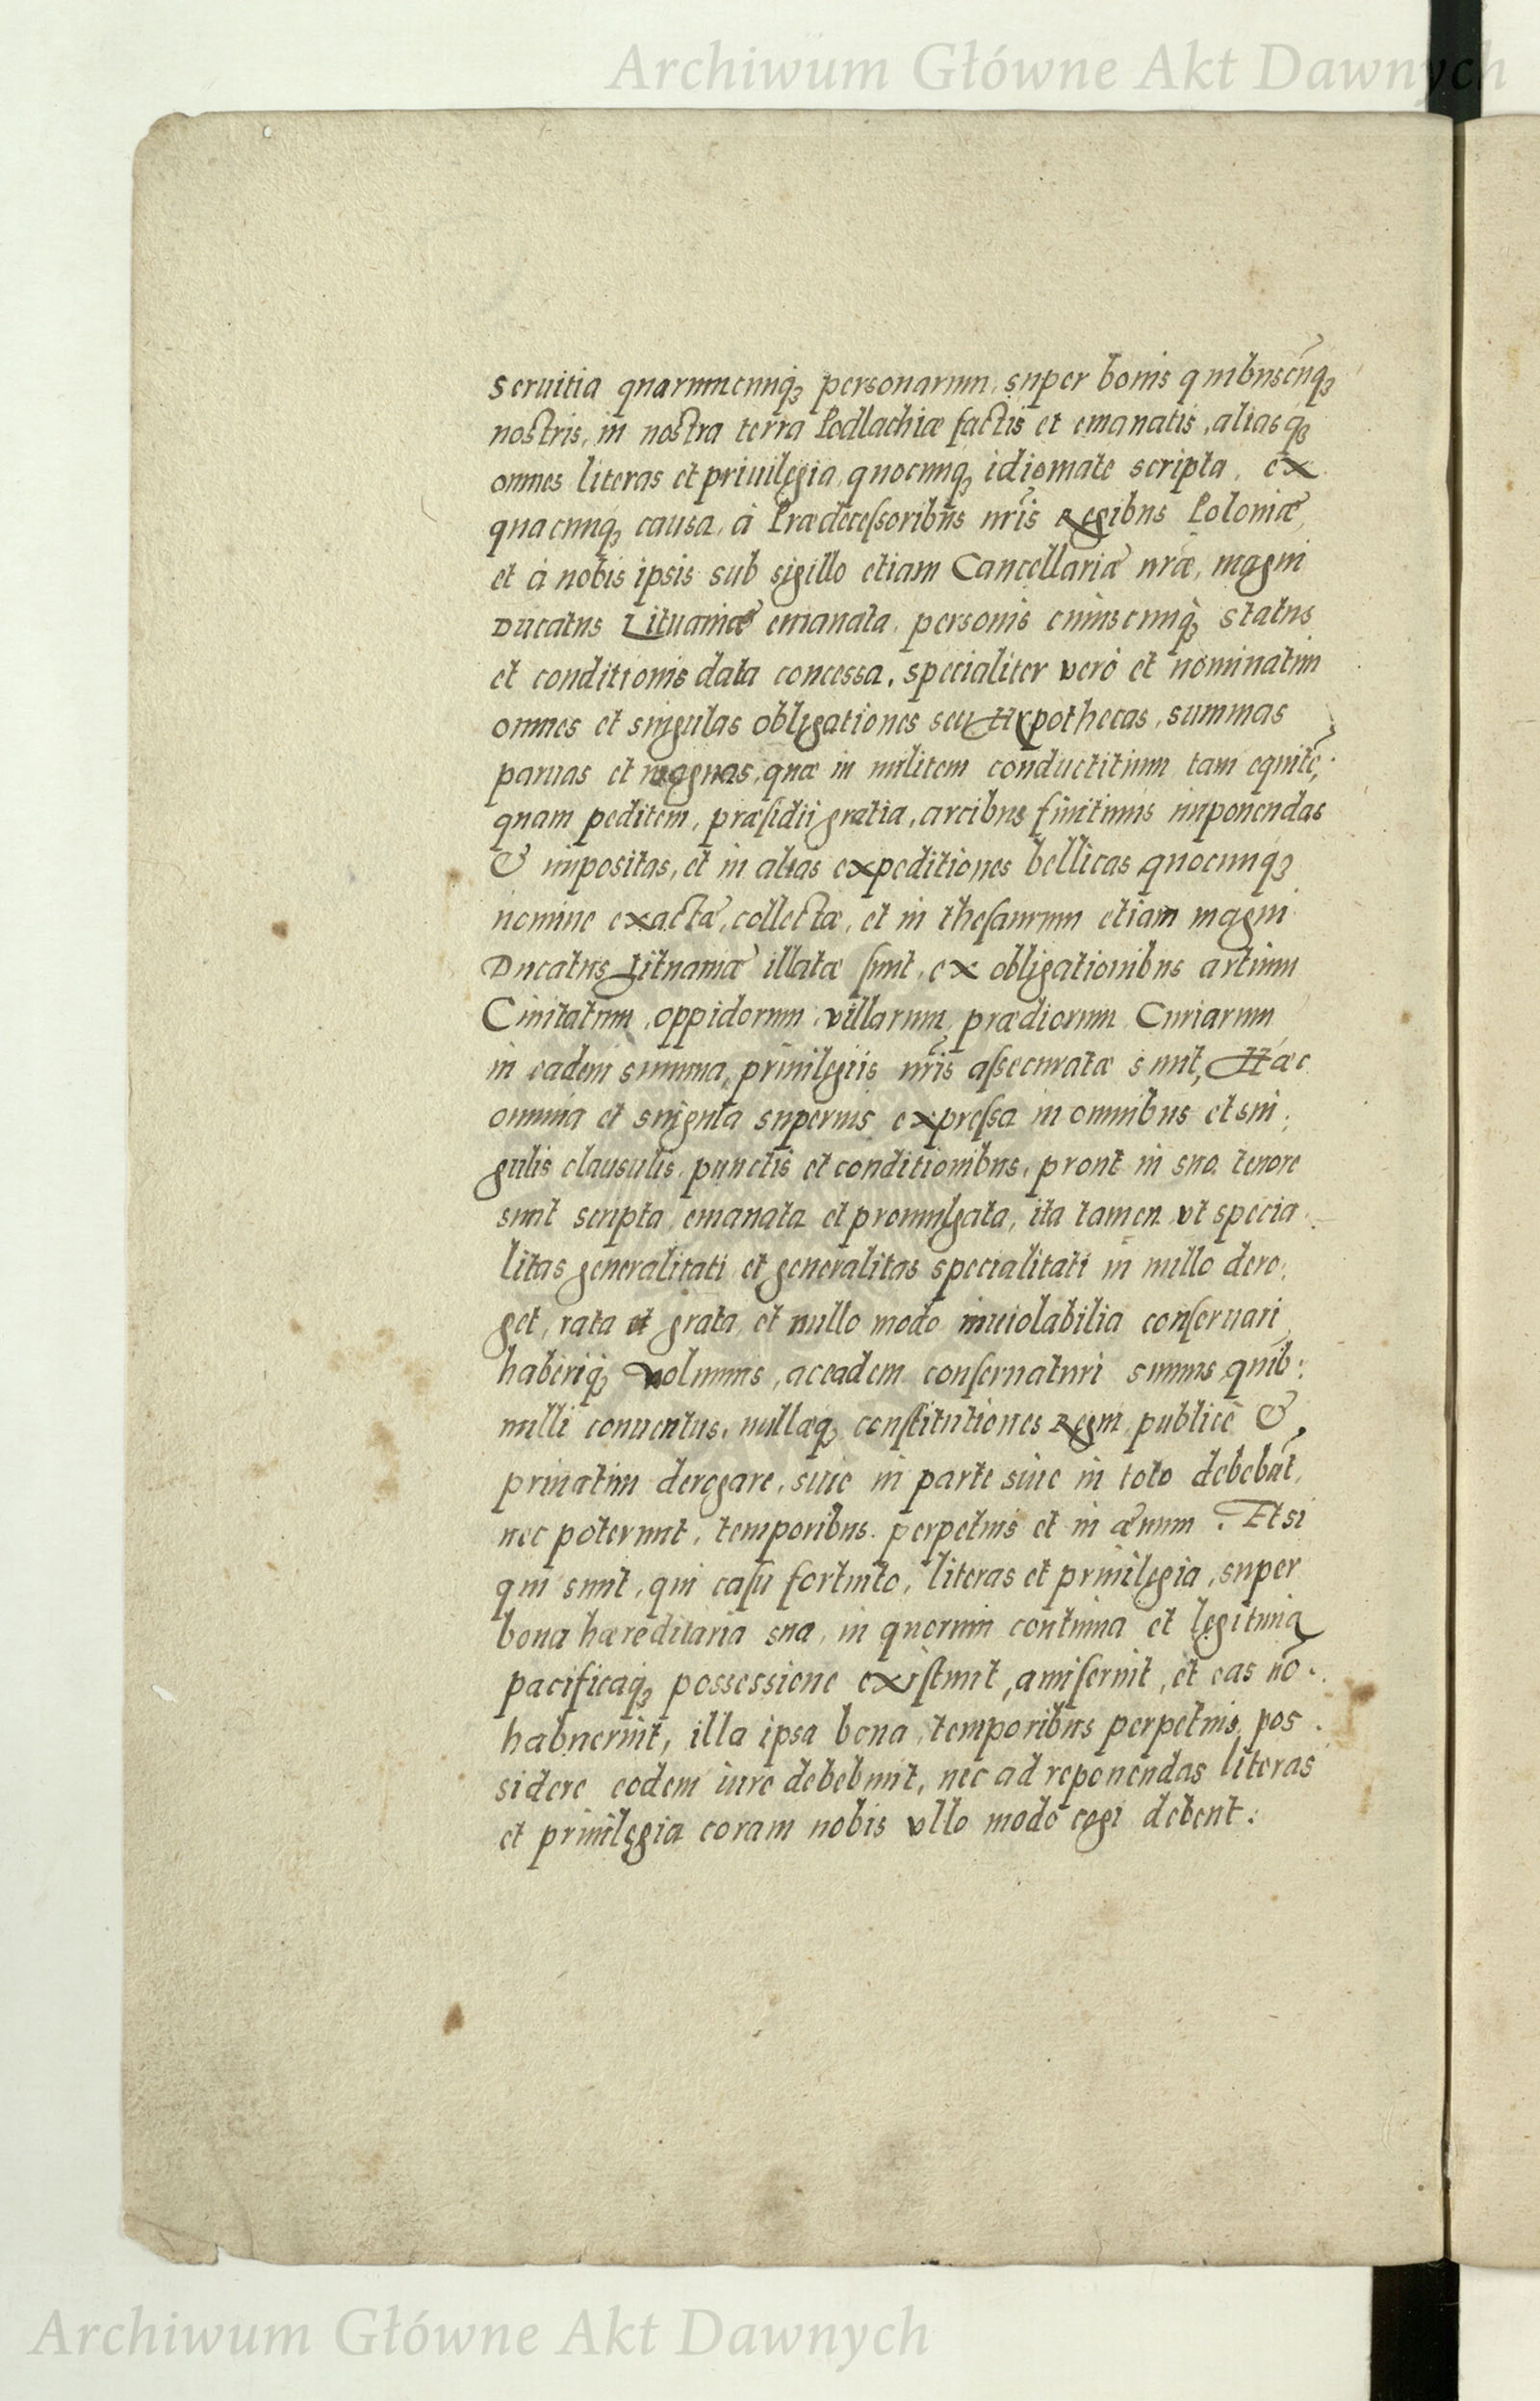 Archiwum Główne Akt Dawnych
seruitia quarumcunq́ꝫ personarum, super bonis quibuscũqꝫ
nostris, in nostra terra Podlachiæ factis et emanatis, aliasqꝫ
omnes literas et priuilegia, quocunq́ꝫ idiomate scripta, ex
quacunq́ꝫ causa, à Prædecessoribus nr̃is Regibus Poloniæ,
et à nobis ipsis sub sigillo etiam Cancellariæ nræ, magni
Ducatus Lituaniæ emanata, personis cuiuscunq́ꝫ status
et conditionis data concessa, specialiter verò et nominatim
omnes et singulas obligationes seu Hypothecas, summas
paruas et magnas, quæ in militem conductitium tam equitẽ,
quam peditem, præsidii gratia, arcibus finitimis imponendas
& impositas, et in alias expeditiones bellicas quocunqꝫ
nomine exactæ, collectæ, et in thesaurum etiam magni
Ducatus Lituaniæ illatæ sunt, ex obligationibus artium
Ciuitatum, oppidorum, villarum, prædiorum, Curiarum
in eadem summa, priuilegiis nr̃is assecuratæ sunt, Hæc
omnia et singula superius expressa in omnibus et sin:
gulis clausulis, punctis et conditionibus, prout in suo tenore
sunt scripta, emanata et promulgata, ita tamen vt specia
litas generalitati, et generalitas specialitati in nullo dero:
get, rata et grata, et nullo modo inuiolabilia conseruari
haberiq́ꝫ volumus, ac eadem conseruaturi sumus, quib:
nulli conuentus, nullæq́ꝫ constitutiones Regni, publicè &
priuatim derogare, siue in parte siue in toto debebũt,
nec poterunt, temporibus perpetuis et in æuum. Et si
qui sunt, qui casu fortuito, literas et priuilegia, super
bona hæreditaria sua, in quorum continua et legitima
pacificaq́ꝫ possessione existunt, amiserint, et eas nõ
habuerint, illa ipsa bona, temporibus perpetuis, pos
sidere eodem iure debebunt, nec ad reponendas literas
et priuilegia coram nobis vllo modo cogi debent.
Archiwum Główne Akt Dawnych